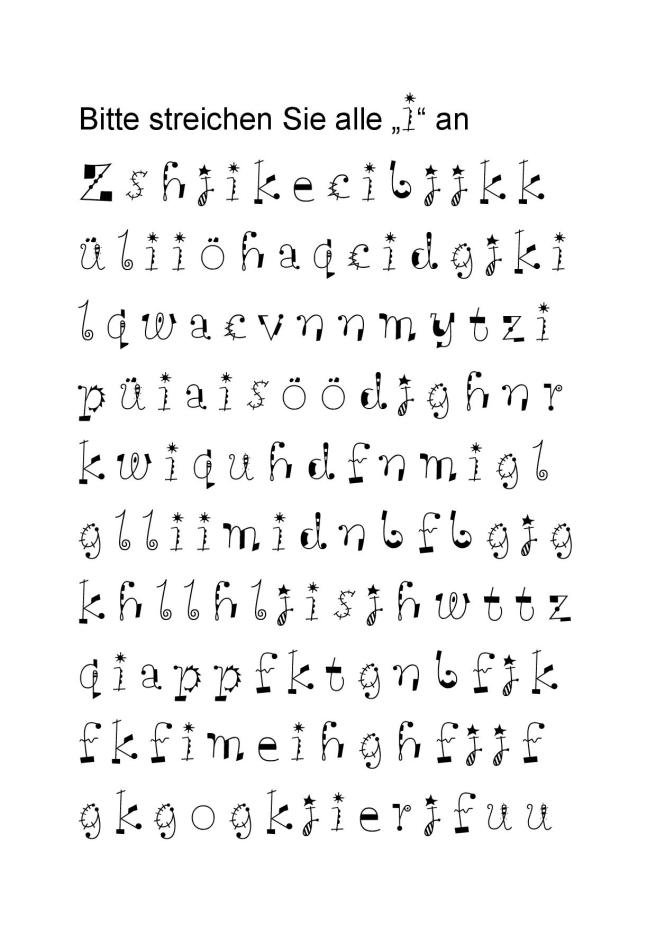 Bitte streichen Sie alle „i“ an
Z s h j i k e c i b j j k k
ü l i i ö h a q c i d g j k i
l q w a c v n n m y t z i
p ü i a i s ö ö d j g h n r
k w i q u h d f n m i g l
g l l i i m i d n b f b g j g
k h l l h l j i s j h w t t z
q i a p p f k t g n b f j k
f k f i m e i h g h f j j f
g k g o g k j i e r j f u u